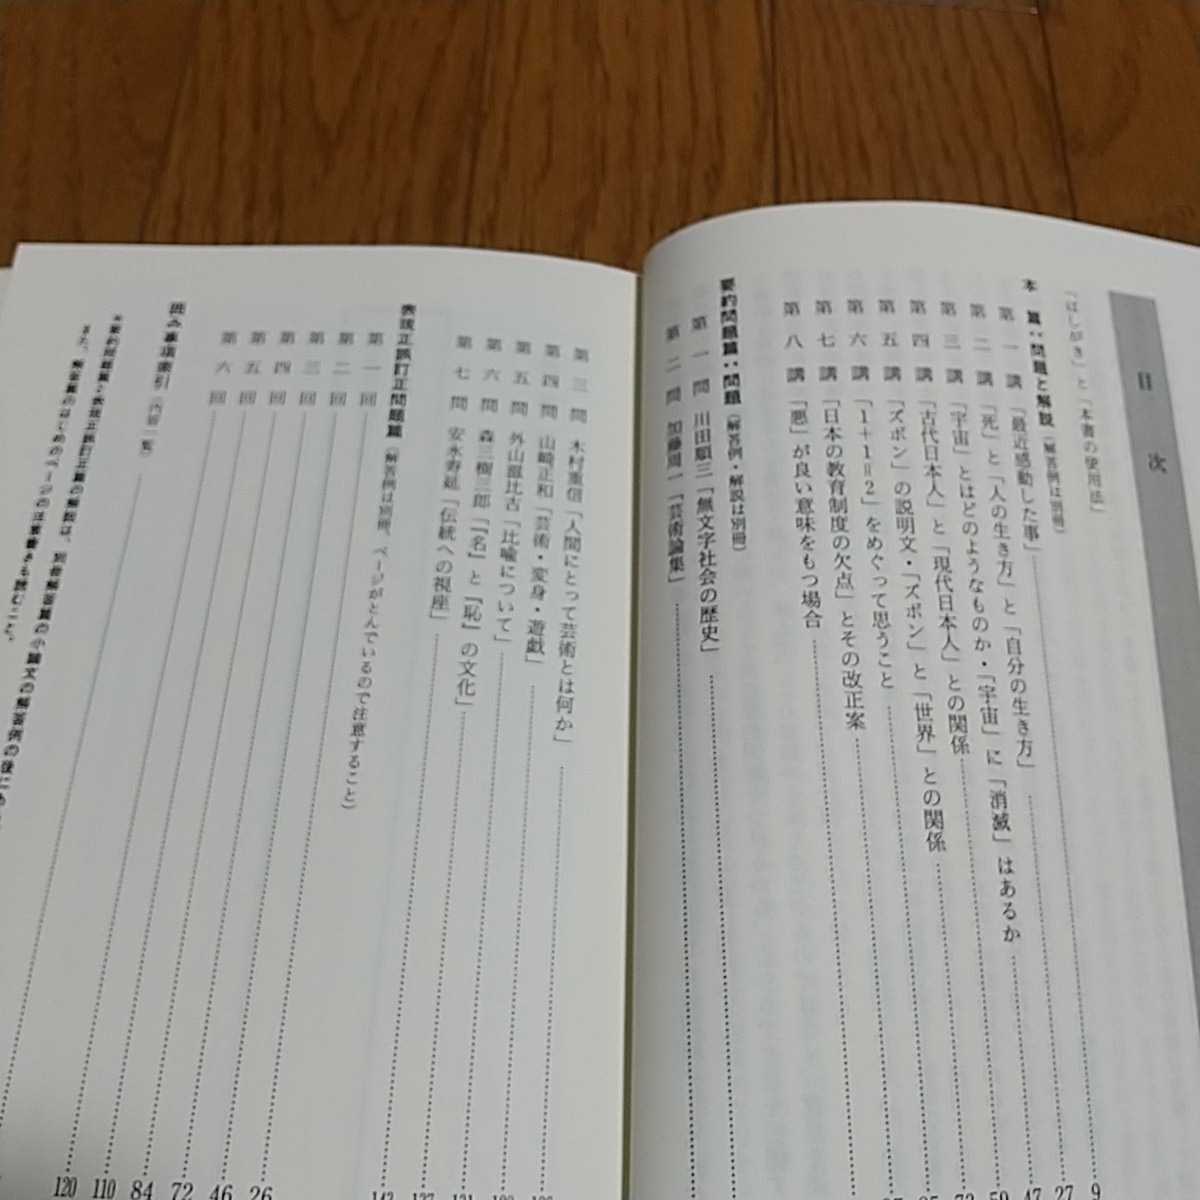 目次
「はしがき」と「本書の使用法」
本篇：問題と解説（解答例は別冊）
第一講 「最近感動した事」 9
第二講 「死」と「人の生き方」と「自分の生き方」 27
第三講 「宇宙」とはどのようなものか・「宇宙」に「消滅」はあるか 47
第四講 「古代日本人」と「現代日本人」との関係 59
第五講 「ズボン」の説明文・「ズボン」と「世界」との関係
第六講 「1＋1＝2」をめぐって思うこと
第七講 「日本の教育制度の欠点」とその改正案
第八講 「悪」が良い意味をもつ場合
要約問題篇：問題（解答例・解説は別冊）
第一問 川田順三「無文字社会の歴史」
第二問 加藤周一「芸術論集」
第三問 木村重信「人間にとって芸術とは何か」
第四問 山崎正和「芸術・変身・遊戯」
第五問 外山滋比古「比喩について」
第六問 森三樹三郎「『名』と『恥』の文化」
第七問 安永寿延「伝統への視座」
表現正誤訂正問題篇（解答例は別冊、ページがとんでいるので注意すること）
第一回 26
第二回 46
第三回 72
第四回 84
第五回 110
第六回 120
囲み事項索引（内容一覧）
＊要約問題篇と表現正誤訂正篇の解説は、別冊解答篇の小論文の解答例の後に
また、解答篇のはじめのページの注意書きも読むこと。